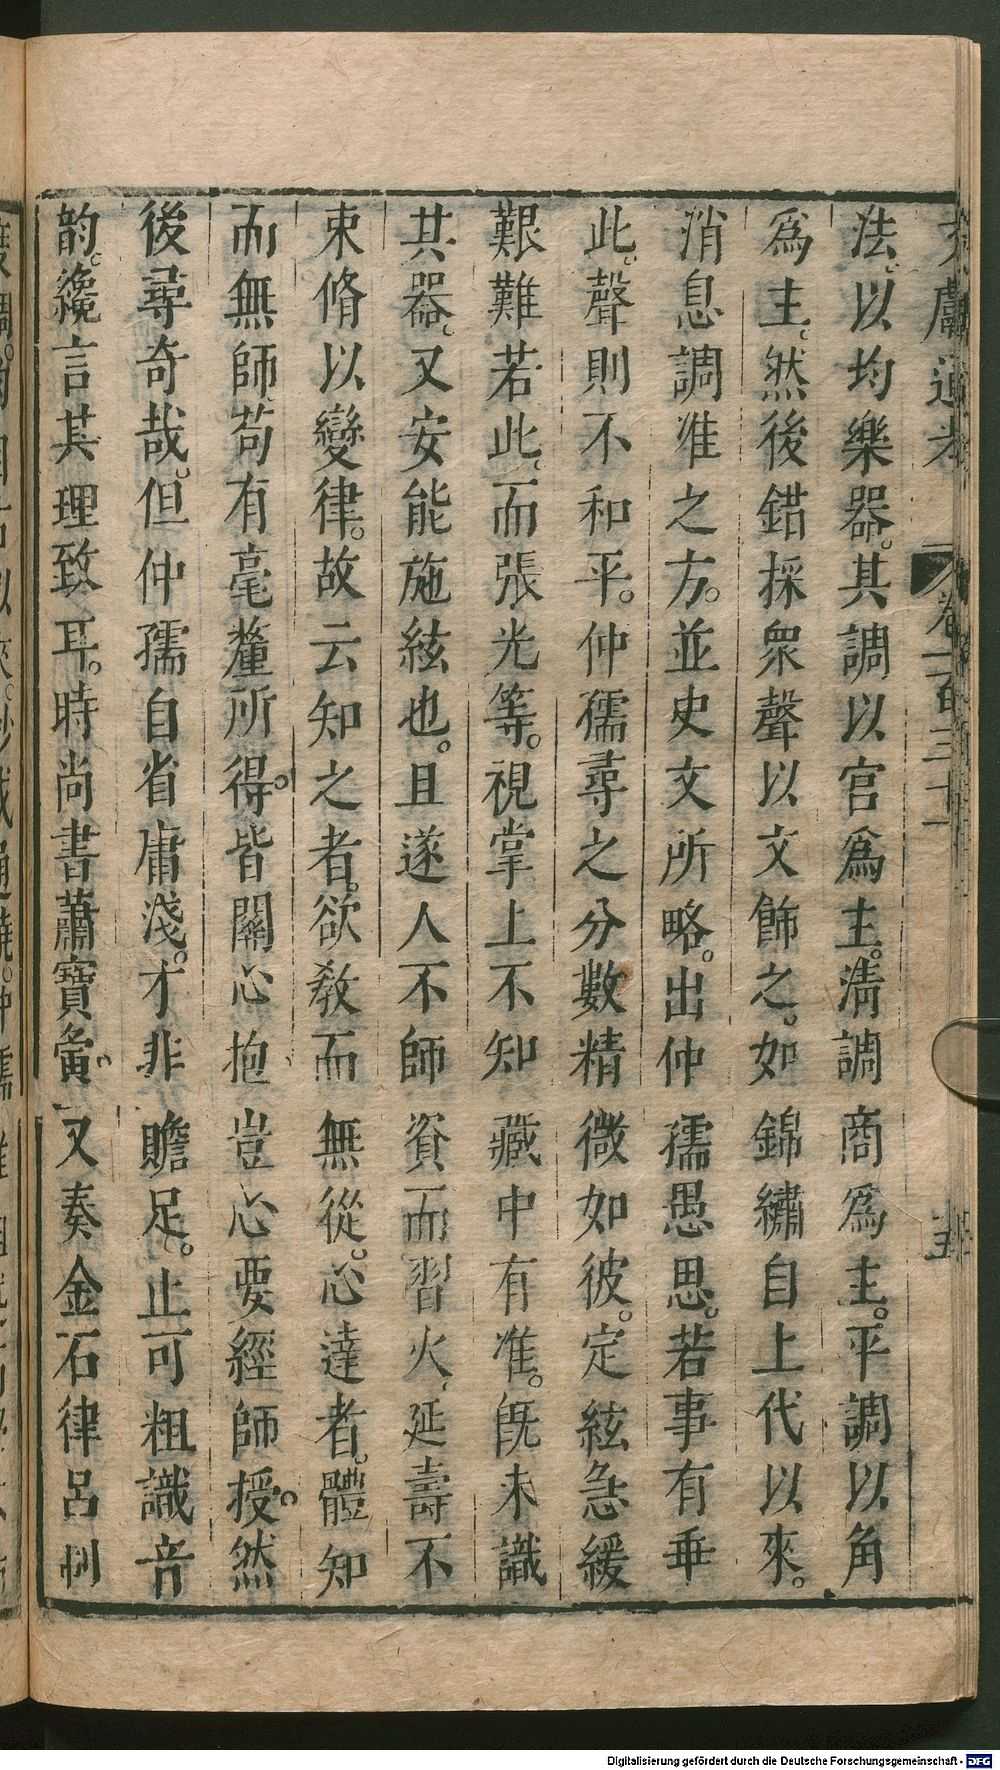 文獻通考 卷一百三十一 五
法以均樂器。其調以宮爲主。淸調商爲主。平調以角
爲主。然後錯採衆聲以文飾之。如錦繡自上代以來。
消息調准之方。並史文所略。出仲孺愚思。若事有乖
此。聲則不和平。仲孺尋之分數精微如彼。定絃急緩
艱難若此。而張光等。視掌上不知藏中有准。旣未識
其器。又安能施絃也。且遂人不師資而習火、延壽不
束脩以變律。故云知之者。欲教而無從。心達者。體知
而無師。苟有毫釐所得。皆關心抱豈必要經師授。然
後尋奇哉。但仲孺自省庸淺。才非贍足。止可粗識音
韵。纔言其理致耳。時尚書蕭寶夤又奏金石律呂制
Digitalisierung gefördert durch die Deutsche Forschungsgemeinschaft - DFG